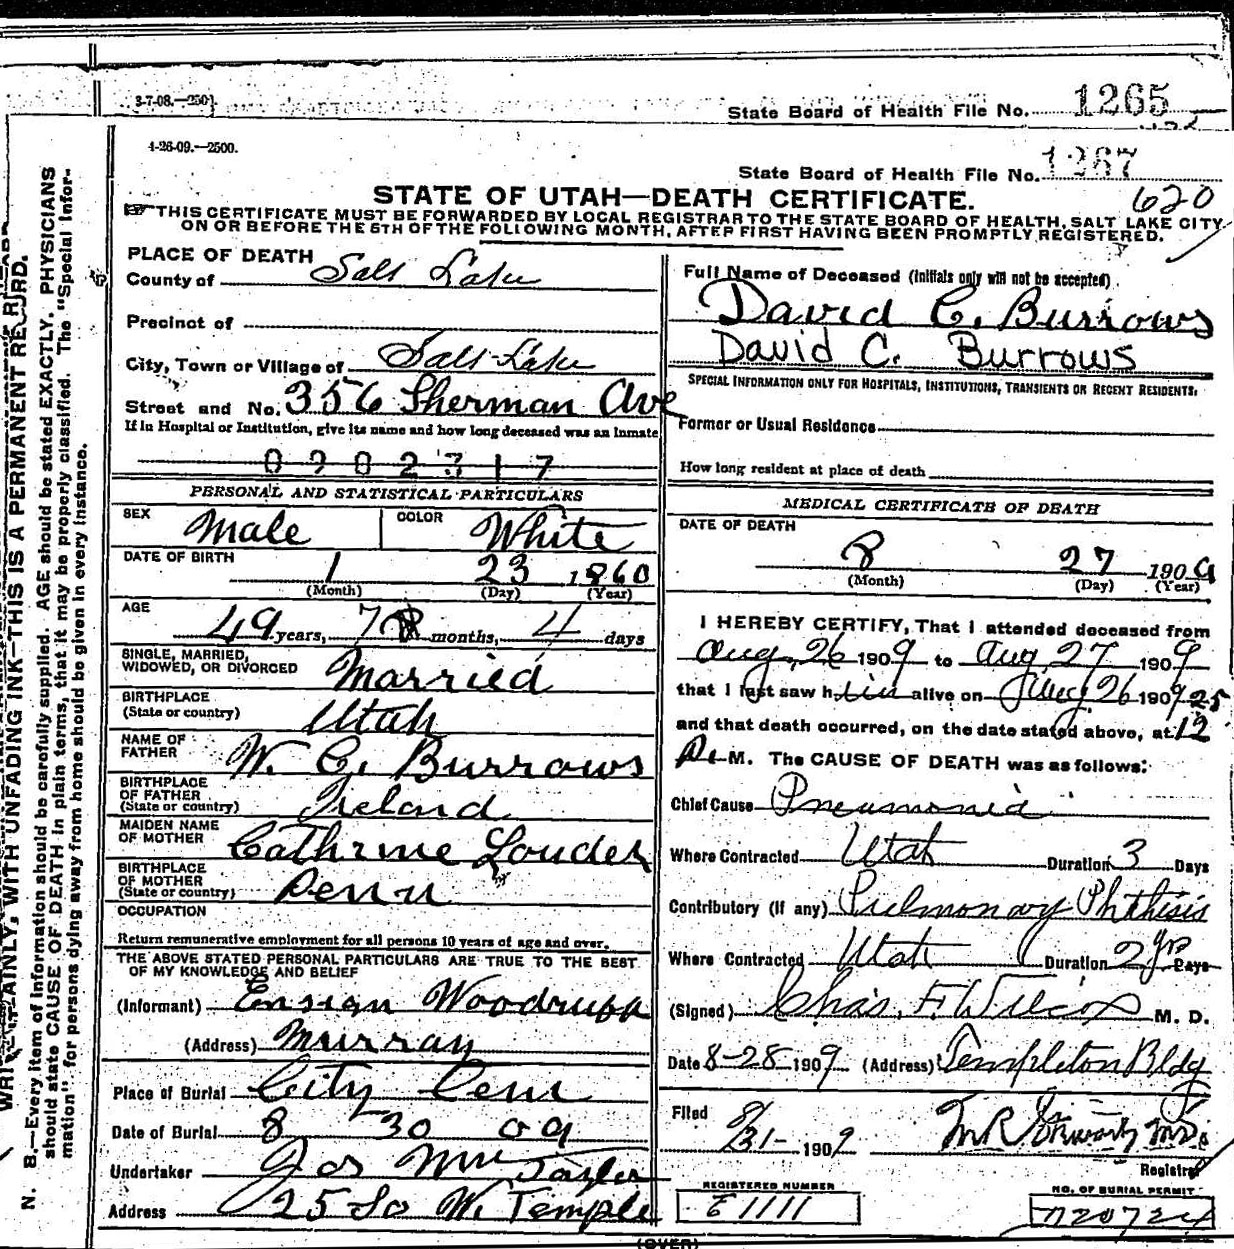 3-7-08.—250
State Board of Health File No. 1265
4-26-09.—2500.
State Board of Health File No. 1267
620
STATE OF UTAH—DEATH CERTIFICATE.
THIS CERTIFICATE MUST BE FORWARDED BY LOCAL REGISTRAR TO THE STATE BOARD OF HEALTH, SALT LAKE CITY
ON OR BEFORE THE 5TH OF THE FOLLOWING MONTH, AFTER FIRST HAVING BEEN PROMPTLY REGISTERED.
PLACE OF DEATH
County of Salt Lake
Precinct of
City, Town or Village of Salt Lake
Street and No. 356 Sherman Ave
If in Hospital or Institution, give its name and how long deceased was an inmate
0902317
PERSONAL AND STATISTICAL PARTICULARS
SEX Male COLOR White
DATE OF BIRTH 1 23 1860
(Month) (Day) (Year)
AGE 49 years, 7 months, 4 days
SINGLE, MARRIED,
WIDOWED, OR DIVORCED Married
BIRTHPLACE
(State or country) Utah
NAME OF
FATHER W. C. Burrows
BIRTHPLACE
OF FATHER
(State or country) Ireland
MAIDEN NAME
OF MOTHER Cathrine Louder
BIRTHPLACE
OF MOTHER
(State or country) Penn
OCCUPATION
Return remunerative employment for all persons 10 years of age and over.
THE ABOVE STATED PERSONAL PARTICULARS ARE TRUE TO THE BEST
OF MY KNOWLEDGE AND BELIEF
(Informant) Ensign Woodruff
(Address) Murray
Place of Burial City Cem
Date of Burial 8 30 09
Undertaker Jos Wm Taylor
Address 25 So W. Temple
Full Name of Deceased (Initials only will not be accepted)
David C. Burrows
David C. Burrows
SPECIAL INFORMATION ONLY FOR HOSPITALS, INSTITUTIONS, TRANSIENTS OR RECENT RESIDENTS:
Former or Usual Residence
How long resident at place of death
MEDICAL CERTIFICATE OF DEATH
DATE OF DEATH
8 27 1909
(Month) (Day) (Year)
I HEREBY CERTIFY, That I attended deceased from
Aug. 26 1909 to Aug 27 1909
that I last saw him alive on Aug 26 1909
and that death occurred, on the date stated above, at 12 25
P. M. The CAUSE OF DEATH was as follows:
Chief Cause Pneumonia
Where Contracted Utah Duration 3 Days
Contributory (if any) Pulmonary Phthisis
Where Contracted Utah Duration 2 yrs Days
(Signed) Chas. F. Wilcox M. D.
Date 8-28 1909 (Address) Templeton Bldg
Filed 8/31- 1909
Registrar
REGISTERED NUMBER
E 1111
NO. OF BURIAL PERMIT
N20724
(OVER)
WRITE PLAINLY, WITH UNFADING INK—THIS IS A PERMANENT RECORD.
N. B.—Every item of information should be carefully supplied. AGE should be stated EXACTLY. PHYSICIANS
should state CAUSE OF DEATH in plain terms, that it may be properly classified. The "Special Infor-
mation" for persons dying away from home should be given in every instance.